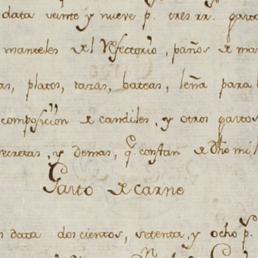 data veinte y nueve p.s tres rr. gasto
manteles del Refectorio, paños de ma
as, platos, tazas, bateas, leña para
composicion de candiles, y otros gastos
ecretas, y demas, q.e constan de dho mi
Gasto de carne
n data doscientos, setenta, y ocho p.s